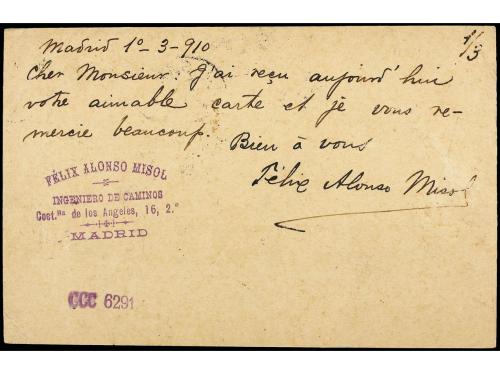 Madrid 1º-3-910
1/3
Cher Monsieur. J'ai reçu aujourd'hui
votre aimable carte et je vous re-
mercie beaucoup.
Bien à vous
Félix Alonso Misol
FÉLIX ALONSO MISOL
INGENIERO DE CAMINOS
Cost.ⁿᵃ de los Angeles, 16, 2.º
MADRID
CCC 6291